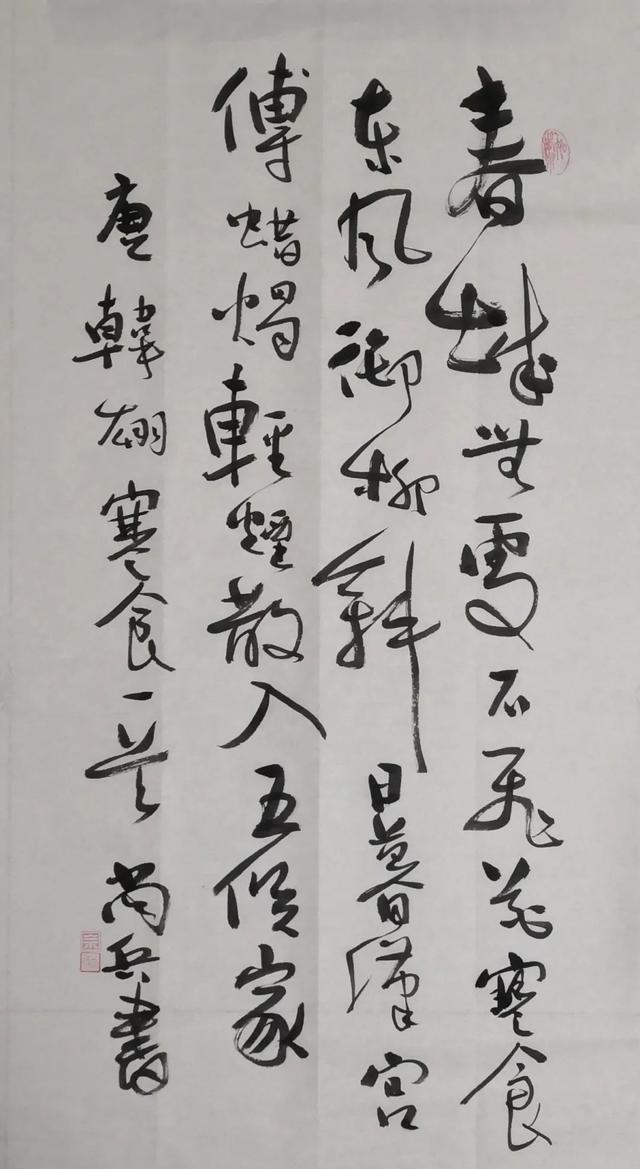 春城無處不飛花寒食
東風御柳斜日暮漢宮
傳蜡燭輕煙散入五侯家
唐韓翃寒食一首尚兵書